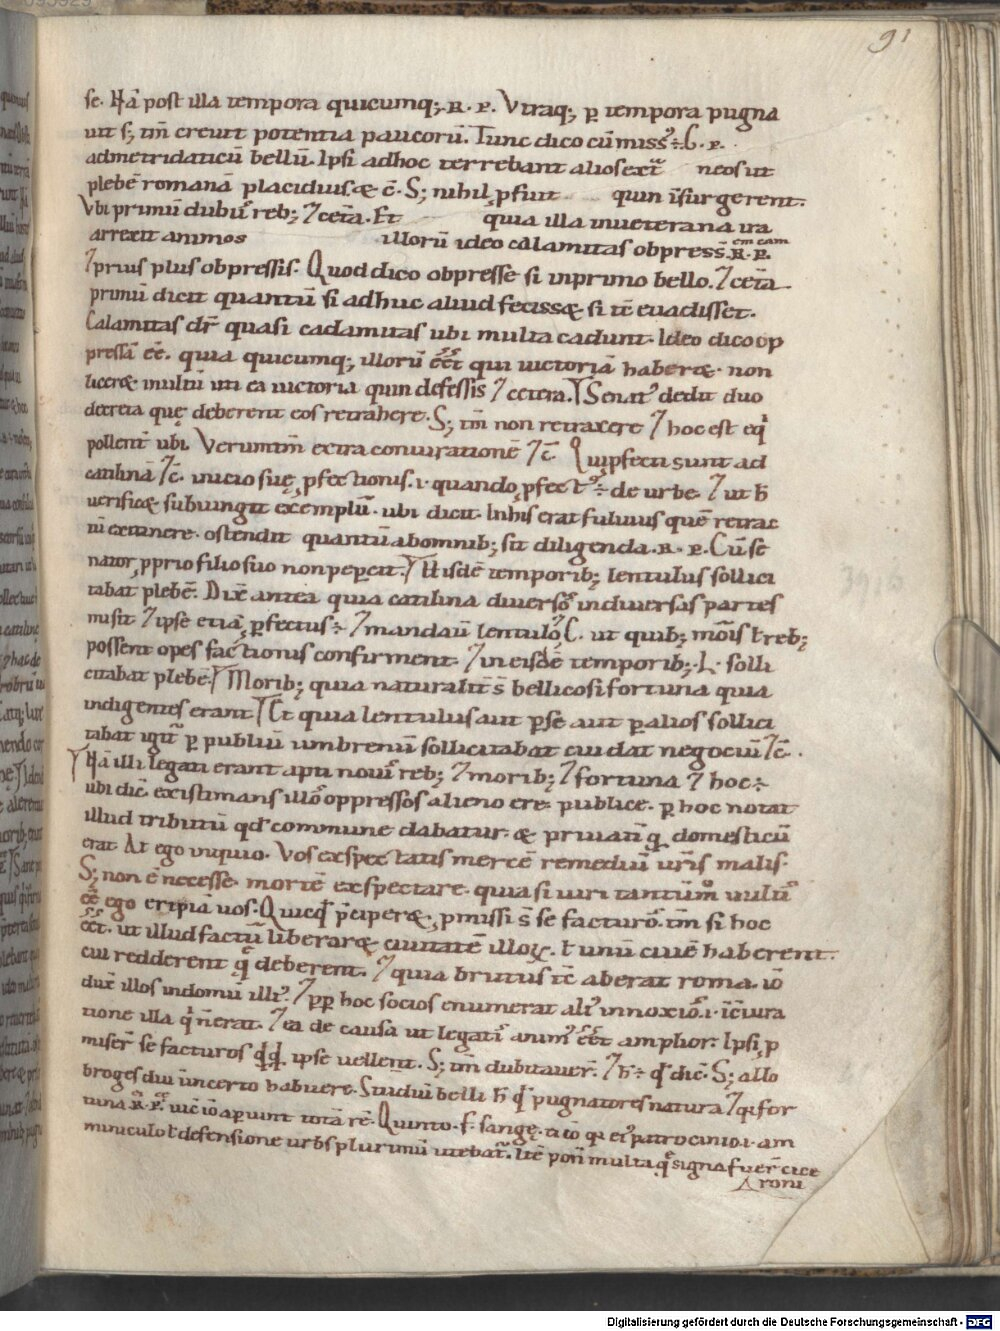 91
se. Nā post illa tempora quicumq; R. P. Vtraq; p tempora pugna
uit s; tm̄ creuit potentia paucorū. Tunc dico cū miss᷒ ÷ C. p.
admetridaticū bellū. Ipsi adhoc terrebant alios ext̄ neos ut
plebē romanā placidius & c̄. S; nihil pfiut quin īsurgerent.
Vbi primū dubiī reb; ⁊ cet̄a. Et quia illa inueterana ira
arrexit animos illorū ideo calamitas obpress̄. R. P.
em eam
⁊ prius plus obpressis. Quod dico obpresse si inprimo bello. ⁊ cet̄a
primū dicit quantū si adhuc aliud fecissæ si īc̄ euadisset.
Calamitas dr̄ quasi cadamitas ubi multa cadunt. Ideo dico op
pressā eē. quia quicumq; illorū eēt qui uictoriā haberæ non
liceræ multū uti ea uictoria quin defessis ⁊ cetera. Senat᷒ dedit duo
decreta quę deberent eos retrahere. S; tm̄ non retraxere ⁊ hoc est eq̇
pollent̄ ubi Verumtm̄ extra coniurationē ⁊ c̄. Qui pfecti sunt ad
catilinā ⁊ c̄. inicio suę pfectionis. i. quando pfect᷒ ÷ de urbe. ⁊ ut h̄
uerificæ subiungit exemplū. ubi dicit. Inhis erat fuluius quē retrac
tū extinere. ostendit quantū abomnib; sit diligenda. R. P. Cū se
nator pprio filio suo non pepercit. Hisdē temporib; lentulus sollici
tabat plebē. Dix̄ antea quia catilina diuersos̄ indiuersas partes
misit ⁊ ipse etiā pfectus ÷ ⁊ mandaū lentulo C. ut quib; mōis ł reb;
possent opes factionis confirment. ⁊ in eisdē temporib; L. solli
citabat plebē. Morib; quia naturalit̄ s̄ bellicosi fortuna quia
indigentes erant. Et quia lentulus aut pse aut palios sollici
tabat igit᷒ p publiū umbrenū sollicitabat cui dat negociū ⁊ c̄.
Nā illi legati erant apti nouis̄ reb; ⁊ morib; ⁊ fortuna ⁊ hoc ÷
ubi dic̄. existimans illos̄ oppressos alieno ere. publice. p hoc notat
illud tributū qd᷒ commune dabatur. & priuatī q̄ domesticū
erat. At ego inquio. Vos exspectatis mercē remediū uris̄ malis.
S; non ē necesse mortē exspectare. quia si uiri tantum̄ uultū
eē ego eripiā uos. Quicq̇ p̄ciperæ, pmissi s̄ se facturos̄. tm̄ si hoc
eēt. ut illud factū liberaræ ciuitatē illoꝝ. ł unū ciuē haberent.
cui redderent q̄ deberent. ⁊ quia brutus īc̄ aberat roma. iō
dux̄ illos indomū illi᷒. ⁊ pp hoc socios enumerat ali᷒ innoxios̄. i. ī c̄iura
tione illa q̇ ñ erat. ⁊ ea de causa ut legatis̄ anim᷒ eēt amplior. Ipsi p
miser̄ se facturos q̇q̇ ipse uellent. S; tm̄ dubitauer̄. ⁊ h̄ ÷ q᷒ dic̄. S; allo
broges diu incerto habuere. Studiū belli h̄ q᷒ pugnatores natura ⁊ qi for
tuna R. P. uic̄ iō aperiunt totā rē. Quinto. f. sangę. ti iō qi ei᷒ patrocinio. i. am
miniculo ł defensione urbs plurimū utebat᷒. Itē pon̄ multa q̄ signa fuer̄ cice
roni
Digitalisierung gefördert durch die Deutsche Forschungsgemeinschaft - DFG